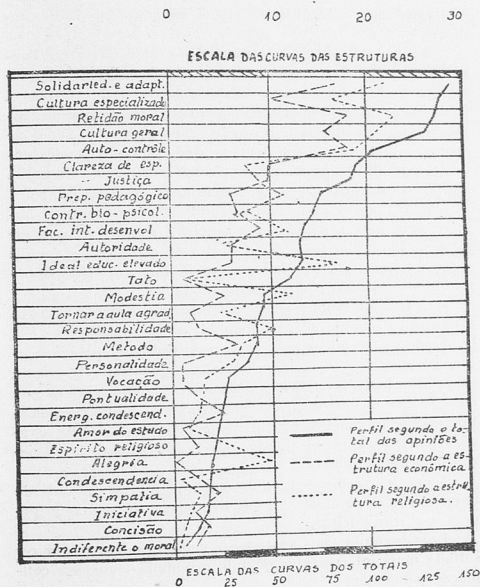 0 10 20 30
ESCALA DAS CURVAS DAS ESTRUTURAS
Solidaried. e adapt.
Cultura especializada
Retidão moral
Cultura geral
Auto-contrôle
Clareza de esp.
Justiça
Prep. pedagógico
Contr. bio-psicol.
Fac. int. desenvol
Autoridade
Ideal educ. elevado
Tato
Modestia
Tornar a aula agrad.
Responsabilidade
Metodo
Personalidade
Vocação
Pontualidade
Energ. condescend.
Amor do estudo
Espirito religioso
Alegria
Condescendencia
Simpatia
Iniciativa
Concisão
Indiferente o moral
Perfil segundo o to-
tal das opiniões
Perfil segundo a es-
trutura econômica
Perfil segundo a estru-
tura religiosa.
ESCALA DAS CURVAS DOS TOTAIS
0 25 50 75 100 125 150